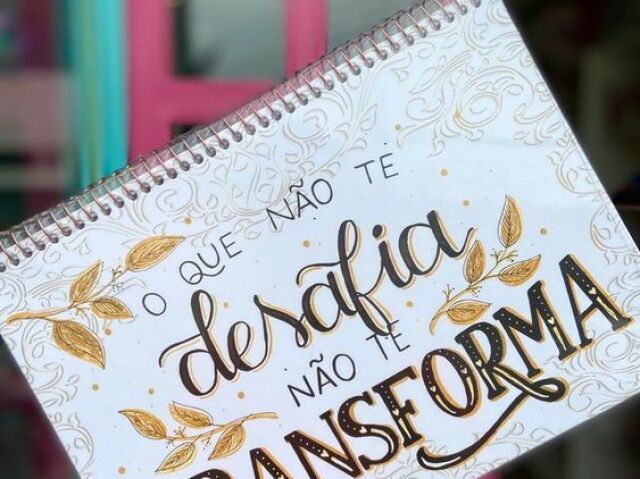 O QUE NÃO TE
desafia
NÃO TE
TRANSFORMA